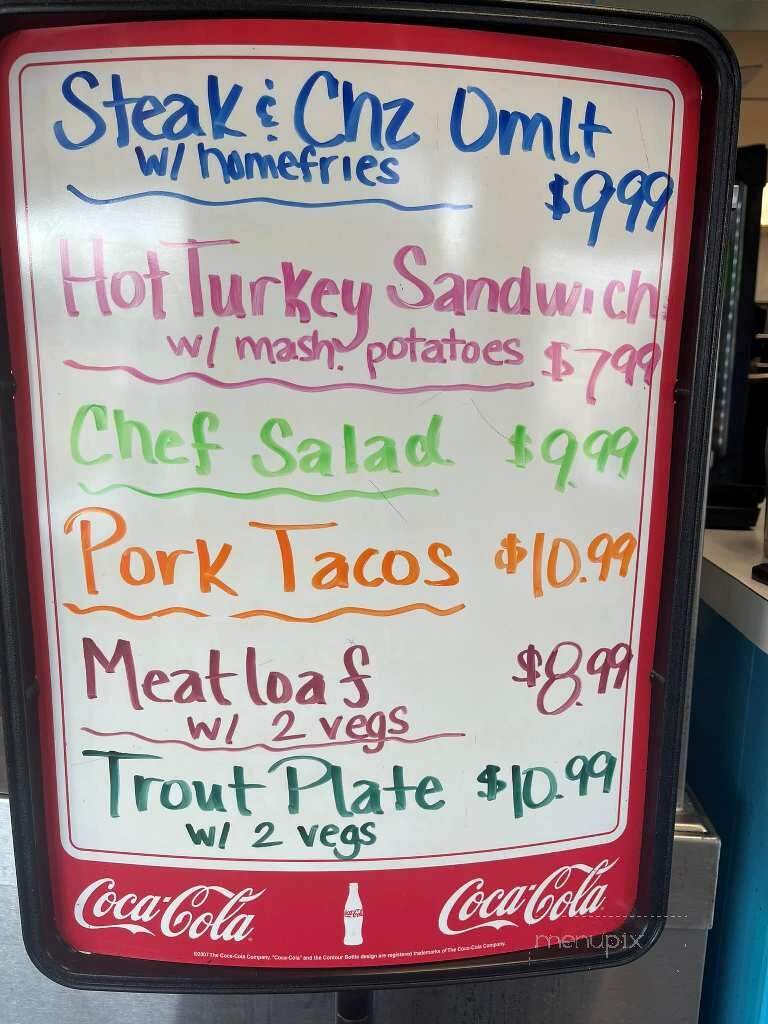 Steak & Chz Omlt
w/ homefries
$9.99
Hot Turkey Sandwich
w/ mash. potatoes $7.99
Chef Salad $9.99
Pork Tacos $10.99
Meatloaf $8.99
w/ 2 vegs
Trout Plate $10.99
w/ 2 vegs
Coca-Cola Coca-Cola Coca-Cola
©2007 The Coca-Cola Company. "Coca-Cola" and the Contour Bottle design are registered trademarks of The Coca-Cola Company.
menupix